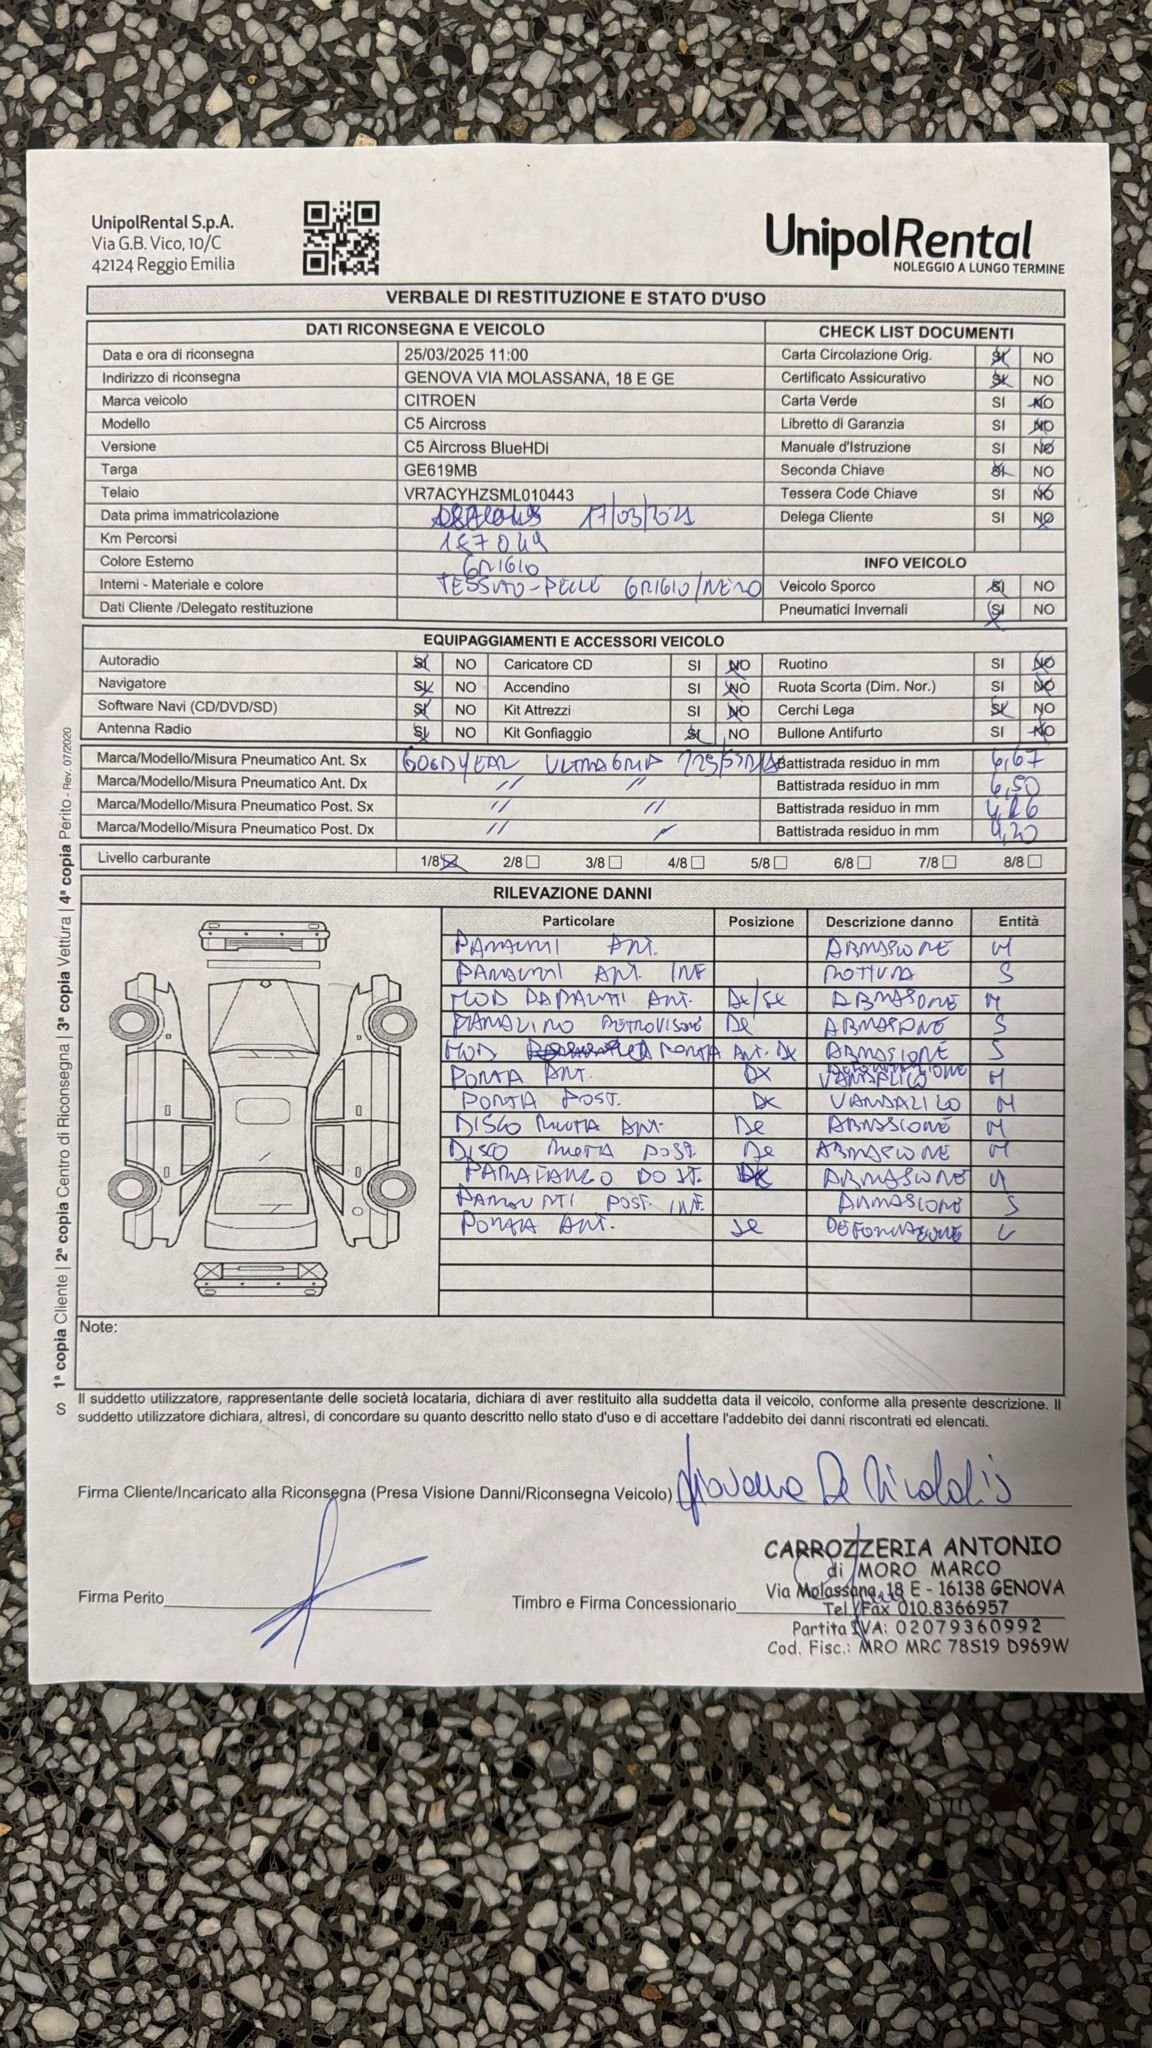 UnipolRental S.p.A.
Via G.B. Vico, 10/C
42124 Reggio Emilia
UnipolRental
NOLEGGIO A LUNGO TERMINE
VERBALE DI RESTITUZIONE E STATO D'USO
DATI RICONSEGNA E VEICOLO CHECK LIST DOCUMENTI
Data e ora di riconsegna 25/03/2025 11:00 Carta Circolazione Orig. SI NO
Indirizzo di riconsegna GENOVA VIA MOLASSANA, 18 E GE Certificato Assicurativo SI NO
Marca veicolo CITROEN Carta Verde SI NO
Modello C5 Aircross Libretto di Garanzia SI NO
Versione C5 Aircross BlueHDi Manuale d'Istruzione SI NO
Targa GE619MB Seconda Chiave SI NO
Telaio VR7ACYHZSML010443 Tessera Code Chiave SI NO
Data prima immatricolazione 17/03/2021 Delega Cliente SI NO
Km Percorsi 187049
Colore Esterno GRIGIO INFO VEICOLO
Interni - Materiale e colore TESSUTO-PELLE GRIGIO/NERO Veicolo Sporco SI NO
Dati Cliente /Delegato restituzione Pneumatici Invernali SI NO
EQUIPAGGIAMENTI E ACCESSORI VEICOLO
Autoradio SI NO Caricatore CD SI NO Ruotino SI NO
Navigatore SI NO Accendino SI NO Ruota Scorta (Dim. Nor.) SI NO
Software Navi (CD/DVD/SD) SI NO Kit Attrezzi SI NO Cerchi Lega SI NO
Antenna Radio SI NO Kit Gonfiaggio SI NO Bullone Antifurto SI NO
Marca/Modello/Misura Pneumatico Ant. Sx GOODYEAR ULTRAGRIP Battistrada residuo in mm 6,67
Marca/Modello/Misura Pneumatico Ant. Dx // // Battistrada residuo in mm 6,50
Marca/Modello/Misura Pneumatico Post. Sx // // Battistrada residuo in mm
Marca/Modello/Misura Pneumatico Post. Dx // // Battistrada residuo in mm 4,20
Livello carburante 1/8 2/8 3/8 4/8 5/8 6/8 7/8 8/8
RILEVAZIONE DANNI
Particolare Posizione Descrizione danno Entità
PARAURTI ANT. ABRASIONE M
PARAURTI ANT. INF ROTTURA S
MOD PARAURTI ANT. Dx/Sx ABRASIONE M
RETROVISORE ABRASIONE S
MOD PORTA ANT. DX ABRASIONE S
PORTA ANT. DX DEFORMAZIONE VANDALICO M
PORTA POST. DX VANDALICO M
DISCO RUOTA ANT. ABRASIONE M
DISCO RUOTA POST. ABRASIONE M
PARAFANGO POST. DX ABRASIONE M
PARAURTI POST. INF. ABRASIONE S
PORTA ANT. DEFORMAZIONE L
Note:
S 1ª copia Cliente | 2ª copia Centro di Riconsegna | 3ª copia Vettura | 4ª copia Perito - Rev. 07/2020
Il suddetto utilizzatore, rappresentante delle società locataria, dichiara di aver restituito alla suddetta data il veicolo, conforme alla presente descrizione. Il
suddetto utilizzatore dichiara, altresì, di concordare su quanto descritto nello stato d'uso e di accettare l'addebito dei danni riscontrati ed elencati.
Firma Cliente/Incaricato alla Riconsegna (Presa Visione Danni/Riconsegna Veicolo)
Firma Perito
Timbro e Firma Concessionario
CARROZZERIA ANTONIO
di MORO MARCO
Via Molassana, 18 E - 16138 GENOVA
Tel./Fax 010.8366957
Partita IVA: 02079360992
Cod. Fisc.: MRO MRC 78S19 D969W